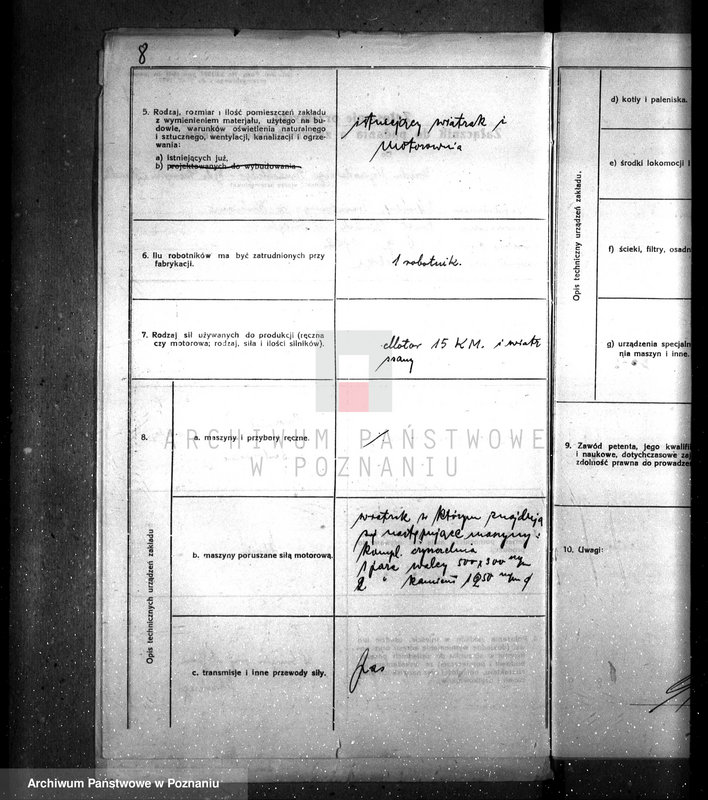 8
5. Rodzaj, rozmiar i ilość pomieszczeń zakładu
z wymienieniem materjału, użytego na bu-
dowie, warunków oświetlenia naturalnego
i sztucznego, wentylacji, kanalizacji i ogrze-
wania:
a) istniejących już,
b) projektowanych do wybudowania
istniejący wiatrak i
Motorownia
6. Ilu robotników ma być zatrudnionych przy
fabrykacji.
1 robotnik.
7. Rodzaj sił używanych do produkcji (ręczna
czy motorowa; rodzaj, siła i ilości silników).
Motor 15 KM. i wiatr
8.
Opis technicznych urządzeń zakładu
a. maszyny i przybory ręczne.
b. maszyny poruszane siłą motorową.
wiatrak w którym znajdują
się następujące maszyny:
kompl.
1 para walcy 500x300 m/m
2 " kamieni 1250 m/m
c. transmisje i inne przewody siły.
Pas
Opis techniczny urządzeń zakład.
d) kotły i paleniska.
e) środki lokomocji i
f) ścieki, filtry, osadn
g) urządzenia specjaln
nia maszyn i inne.
9. Zawód petenta, jego kwalifi
i naukowe, dotychczasowe zaj
zdolność prawna do prowadze
10. Uwagi:
ARCHIWUM PAŃSTWOWE
W POZNANIU
Archiwum Państwowe w Poznaniu